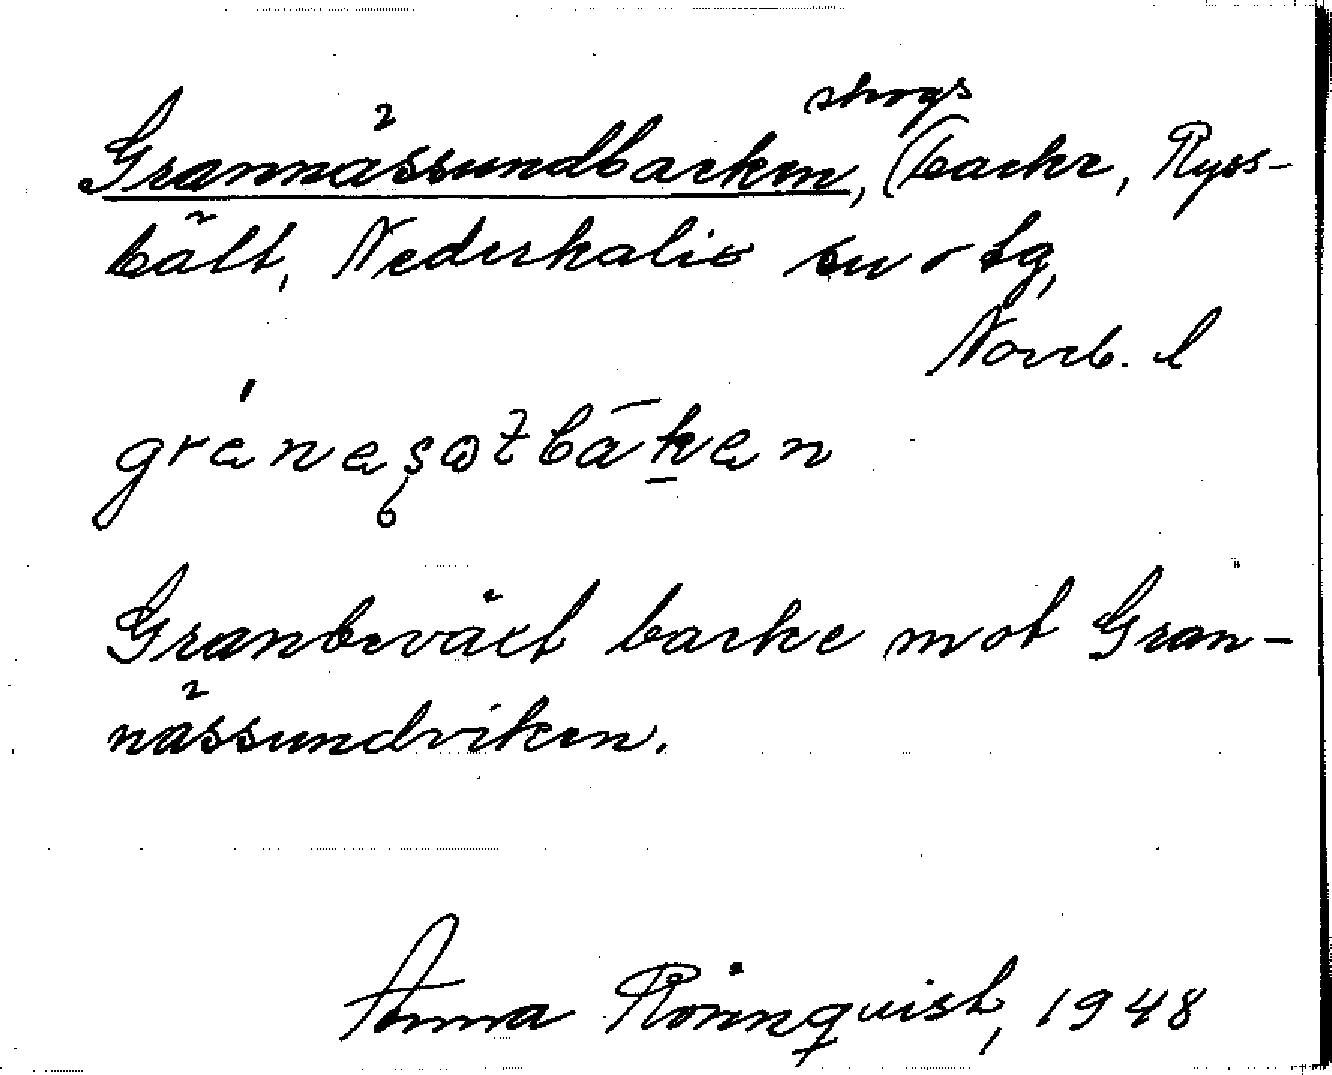 skogs
Grannässundbacken, (backe, Ryss-
bält, Nederkalix sn o tg,
Norrb. l
gránesωtbáken
Granbeväxt backe mot Gran-
nässundviken.
Anna Rönnquist, 1948